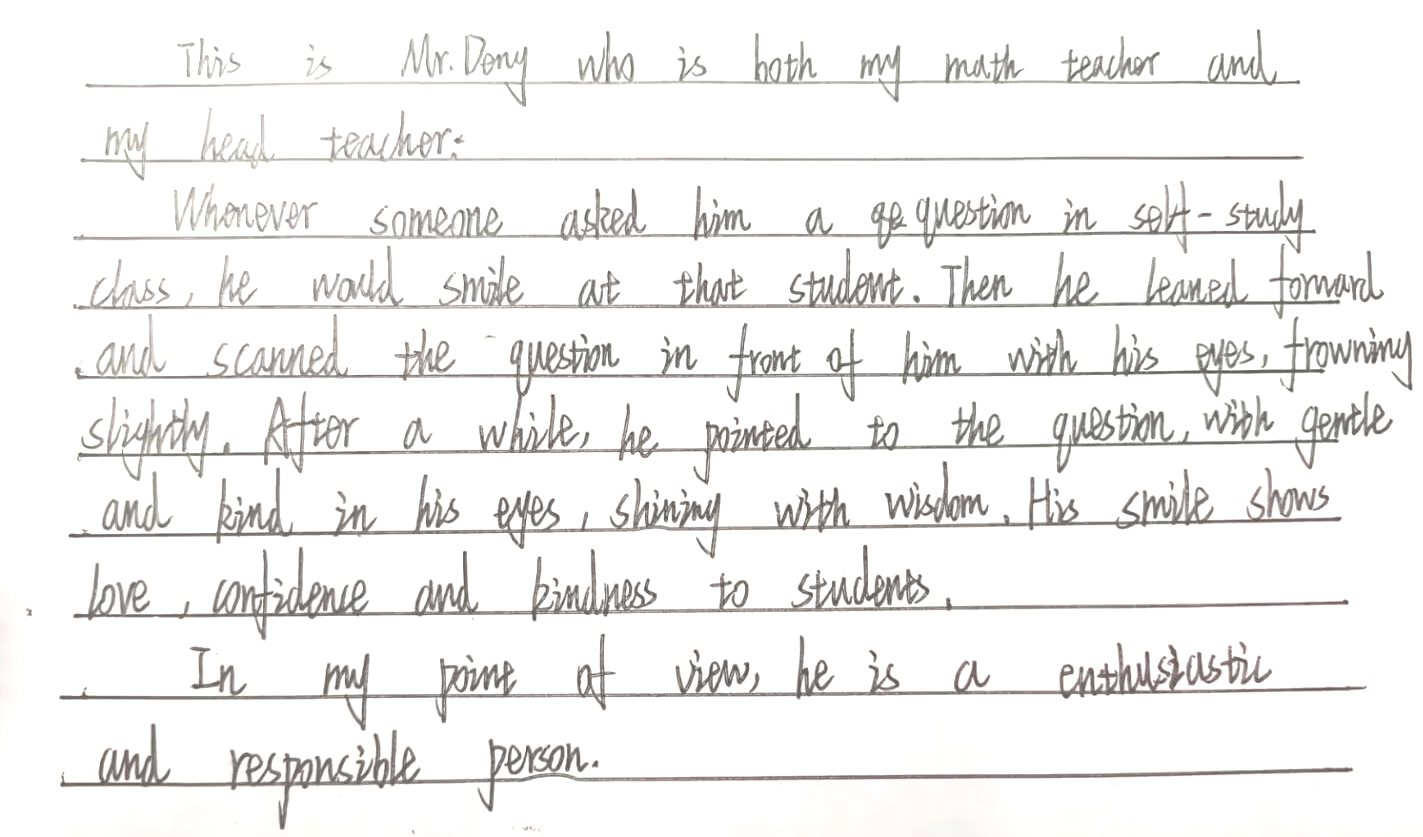 This is Mr. Deng who is both my math teacher and
my head teacher.
Whenever someone asked him a question in self-study
class, he would smile at that student. Then he leaned forward
and scanned the question in front of him with his eyes, frowning
slightly. After a while, he pointed to the question, with gentle
and kind in his eyes, shining with wisdom. His smile shows
love, confidence and kindness to students.
In my point of view, he is a enthusiastic
and responsible person.